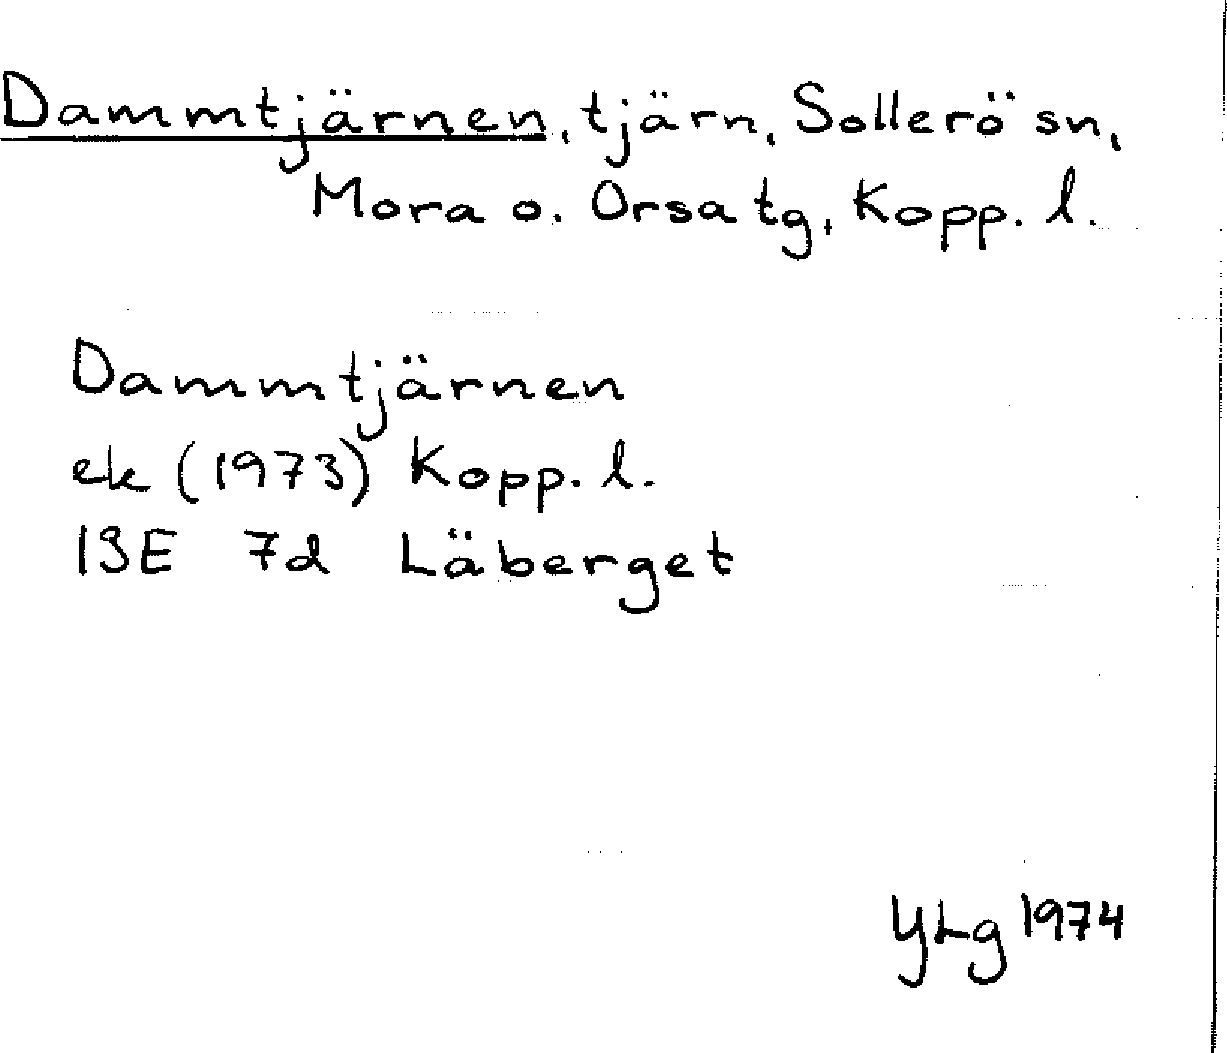 Dammtjärnen, tjärn, Sollerö sn,
Mora o. Orsa tg, Kopp. l.
Dammtjärnen
ek (1973) Kopp. l.
13E 7d Läberget
YLg 1974